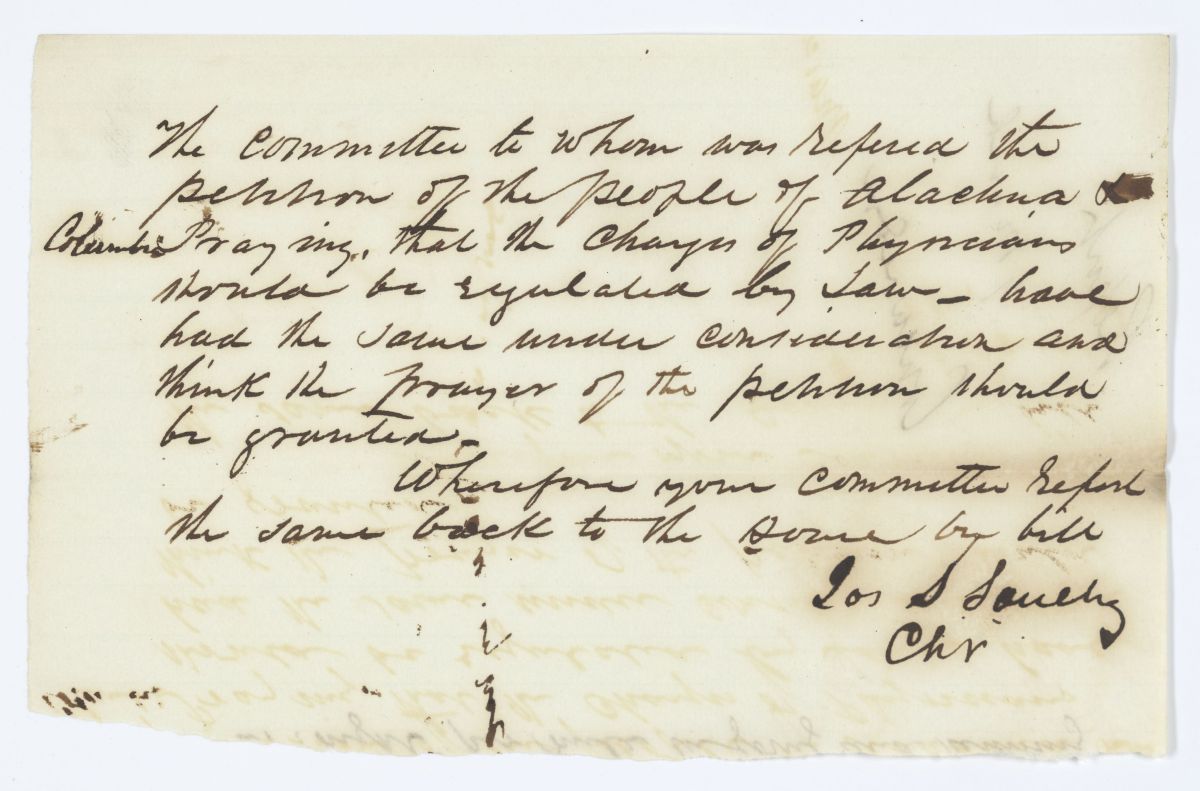 The committee to whom was refered the
petition of the people of Alachua &
Columbia Praying, that the charges of Physicians
should be regulated by Law – have
had the same under consideration and
think the prayer of the petition should
be granted –
Wherefore your committee report
the same back to the House by bill
Jos S Sanchez
Chr